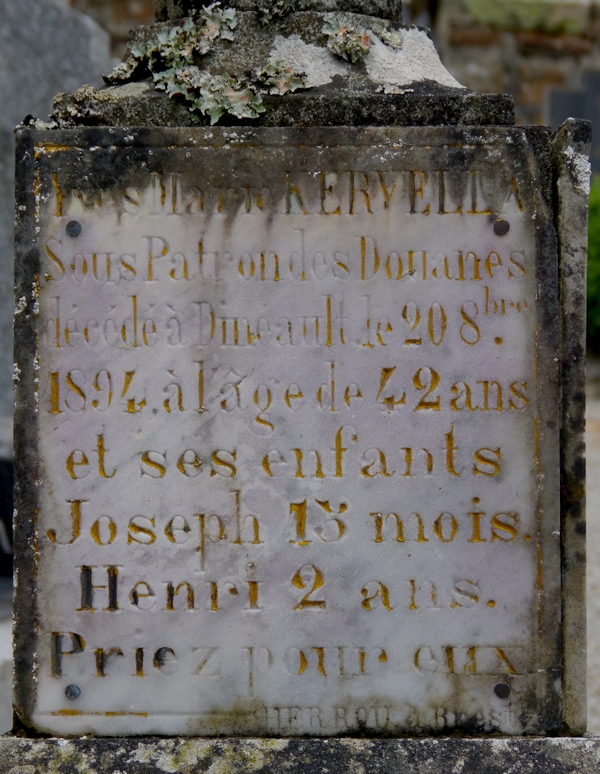 Yves Marie KERVELLA
Sous Patron des Douanes
décédé à Dinéault, le 20 8.bre
1894, à l'âge de 42 ans
et ses enfants
Joseph 15 mois.
Henri 2 ans.
Priez pour eux
HERROU à Brest